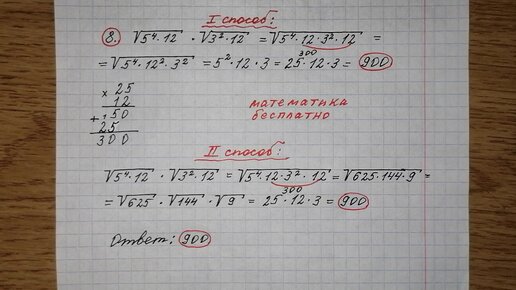 I способ:
8. √5⁴·12 · √3²·12 = √5⁴·12·3²·12 =
= √5⁴·12²·3² = 5²·12·3 = 25·12·3 = 900
300
× 25
12
+ 50
25
300
математика
бесплатно
II способ:
√5⁴·12 · √3²·12 = √5⁴·12·3²·12 = √625·144·9 =
= √625 · √144 · √9 = 25·12·3 = 900
300
Ответ: 900